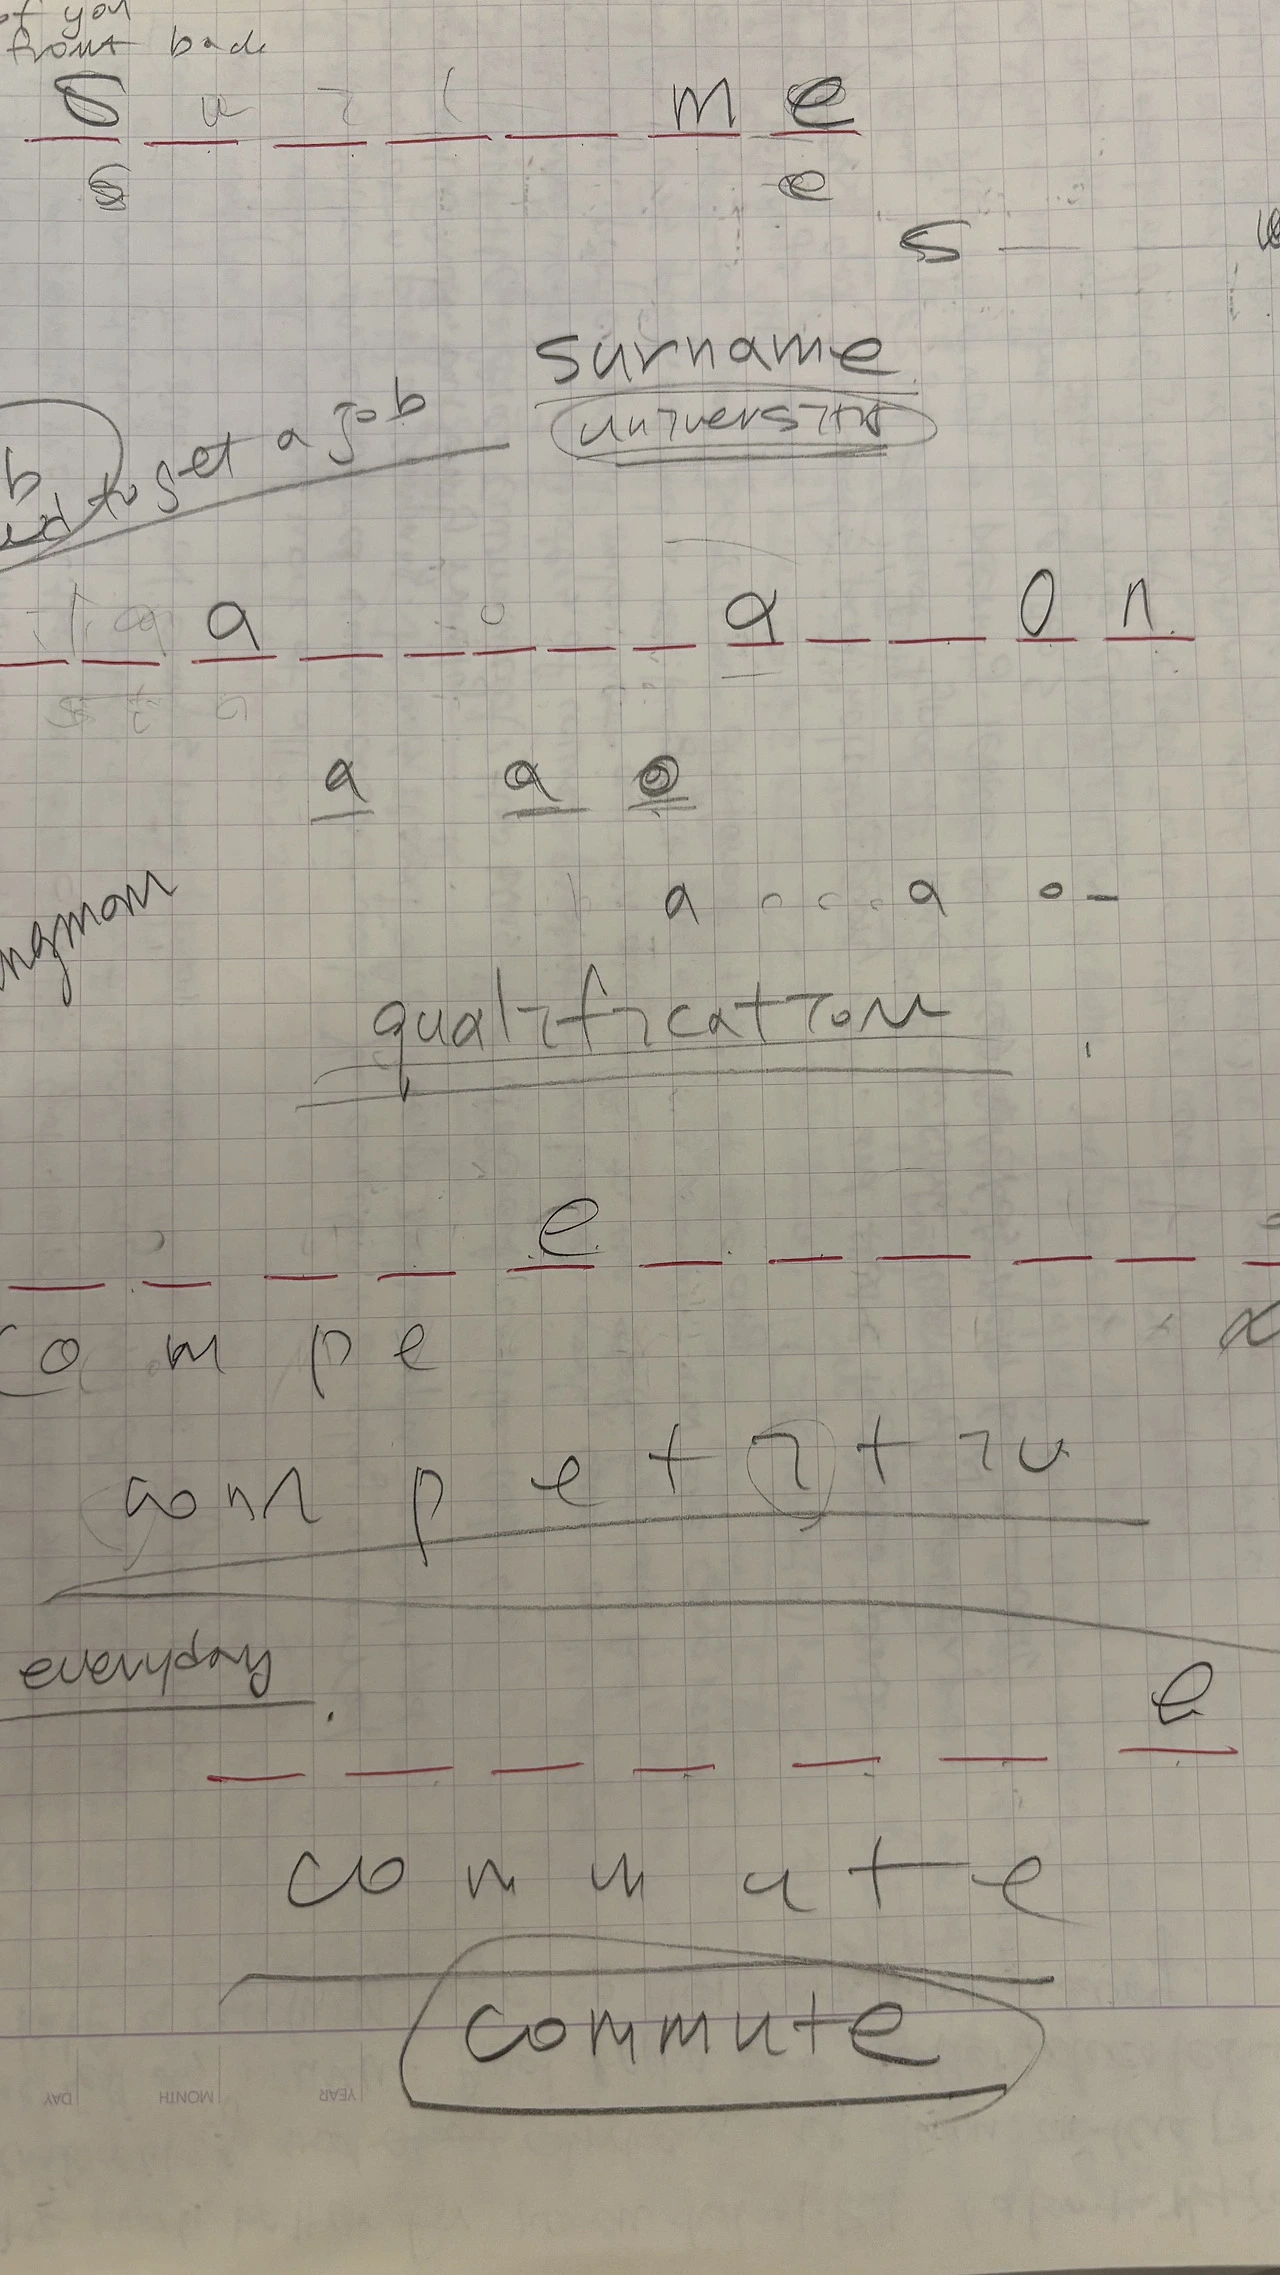 of you
front back
S u r m e
S e
S
surname
university
to get a job
a a o n
a a o
a a o
qualification
e
c o m p e
com p e t i t iv
everyday
e
co m m u t e
commute
DAY MONTH YEAR